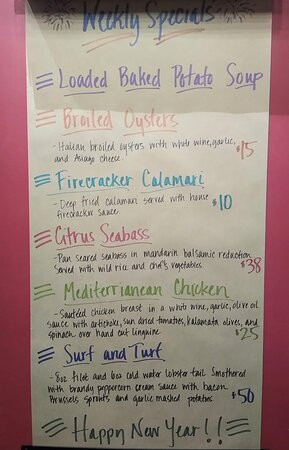 Weekly Specials
Loaded Baked Potato Soup
Broiled Oysters
- Italian broiled oysters with white wine, garlic,
and Asiago cheese. $15
Firecracker Calamari
- Deep fried calamari served with house
firecracker sauce. $10
Citrus Seabass
- Pan seared seabass in mandarin balsamic reduction.
Served with wild rice and chef's vegetables. $38
Mediterranean Chicken
- Sautéed chicken breast in a white wine, garlic, olive oil
sauce with artichoke, sun dried tomatoes, kalamata olives, and
spinach over hand cut linguine. $25
Surf and Turf
- 8oz filet and 6oz cold water lobster tail. Smothered
with brandy peppercorn cream sauce with bacon
Brussels sprouts and garlic mashed potatoes. $50
Happy New Year!!